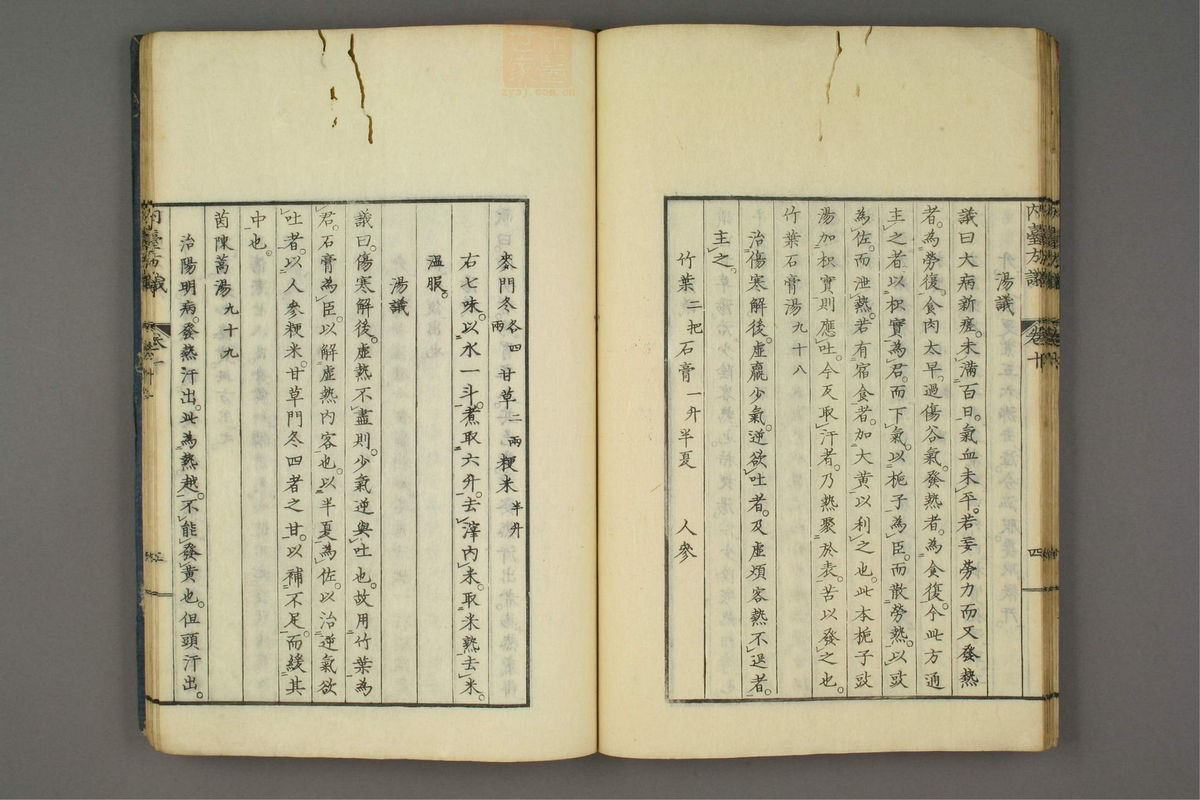 內臺方議 卷十 四
湯議
議曰大病新瘥。未滿百日。氣血未平。若妄勞力而又發熱
者。為勞復。食肉太早。過傷谷氣。發熱者。為食復。今此方通
主之者以枳實為君。而下氣。以梔子為臣。而散勞熱。以豉
為佐。而泄熱。若有宿食者。加大黃以利之也。此本梔子豉
湯加枳實則應吐。今反取汗者。乃熱聚於表。苦以發之也。
竹葉石膏湯九十八
治傷寒解後。虛羸少氣。逆欲吐者。及虛煩客熱不退者。
主之。
竹葉二把石膏一升半夏 人參
麥門冬各四兩 甘草二兩粳米半升
右七味。以水一斗。煮取六升。去滓內米。取米熟去米。
溫服。
湯議
議曰。傷寒解後。虛熱不盡則。少氣逆與吐也。故用竹葉為
君。石膏為臣。以解虛熱內客也。以半夏為佐。以治逆氣欲
吐者。以人參粳米。甘草門冬四者之甘。以補不足。而緩其
中也。
茵陳蒿湯九十九
治陽明病。發熱汗出。此為熱越。不能發黃也。但頭汗出。
zysj.com.cn